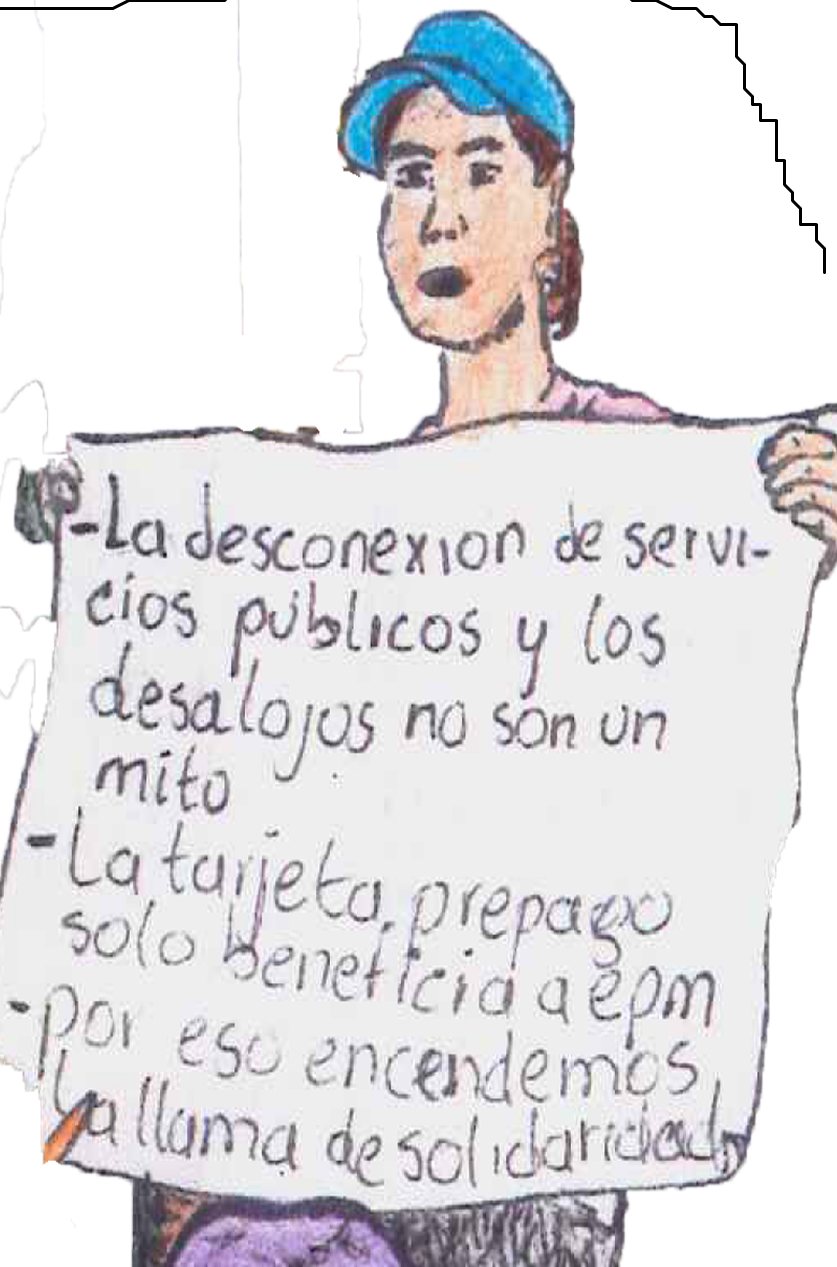 -La desconexion de servi-
cios publicos y los
desalojos no son un
mito
-La tarjeta prepago
solo beneficia a epm
-por eso encendemos
La llama de solidaridad